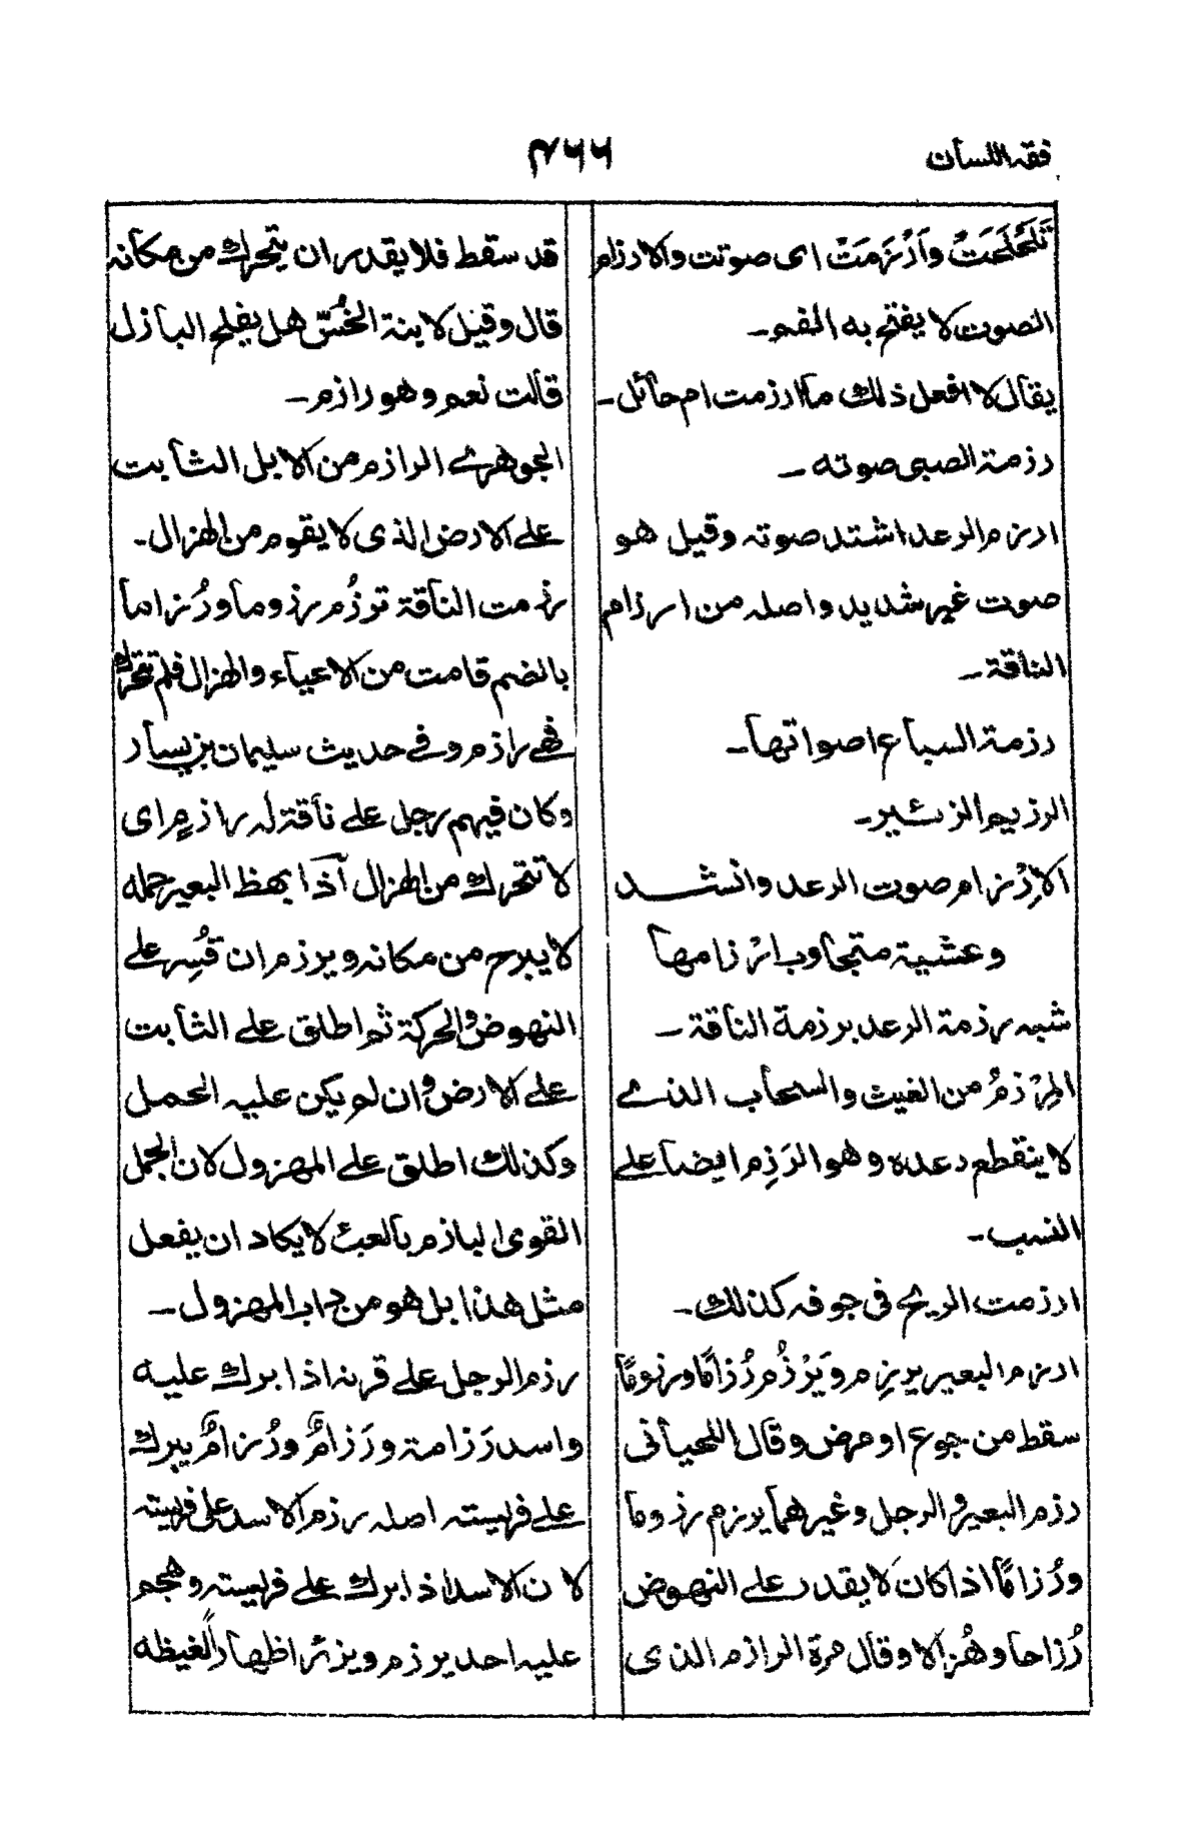 فقہ اللسان
۴۶۶
تَلَحْلَحَتْ وَاَرْزَمَتْ ای صوتت والارزام
الصوت لا یفتح به الفم۔
یقال لا افعل ذلك ما ارزمت ام حائل۔
رزمۃ الصبی صوته۔
ارزم الرعد اشتد صوته وقیل هو
صوت غیر شدید واصله من ارزام
الناقۃ۔
رزمۃ السباع اصواتها۔
الرزیم الزئیر۔
الاِرْزام صوت الرعد وانشد
وعشیۃ متجاوب ارْزامها
شبه رزمۃ الرعد برزمۃ الناقۃ۔
المِرْزمُ من الغیث والسحاب الذے
لا ینقطع رعده وهو الرَزِم ایضا علے
النسب۔
ارزمت الریح فی جوفه کذلك۔
ارزم البعیر یرزِم ویَرْزُم رُزامًا ورزومًا
سقط من جوع او مرض وقال اللحیانی
رزم البعیر والرجل وغیرهما یرزم رزوما
ورُزامًا اذا کان لا یقدر علے النهوض
رُزاحا وهُزالا وقال مرۃ الرازم الذی
قد سقط فلا یقدر ان یتحرك من مکانه
قال وقیل لابنۃ الخُسّ هل یفلح البازل
قالت نعم وهو رازم۔
الجوهرے الرازم من الابل الثابت
علے الارض الذی لا یقوم من الهزال۔
رزمت الناقۃ ترزُم رزوما ورُزاما
بالضم قامت من الاعیاء والهزال فلم تتحرك
فهے رازم وفے حدیث سلیمان بن یسار
وکان فیهم رجل علے ناقۃ له رازمٍ ای
لا تتحرك من الهزال اذا بهظ البعیر حمله
لا یبرح من مکانه ویرزم ان قُسِر علے
النهوض والحرکۃ ثم اطلق علے الثابت
علے الارض وان لم یکن علیه الحمل
وکذلك اطلق علے المهزول لان الجمل
القوی البازم بالعبئ لا یکاد ان یفعل
مثل هذا بل هو من داب المهزول۔
رزم الرجل علے قرنه اذا برك علیه
واسد رَزامۃ ورَزامٌ ورُزامٌ یبرك
علے فریسته اصله رزم الاسد علی فریسته
لان الاسد اذا برك علے فریسته وهجم
علیه احد یرزم ویزئر اظهارًا لغیظه